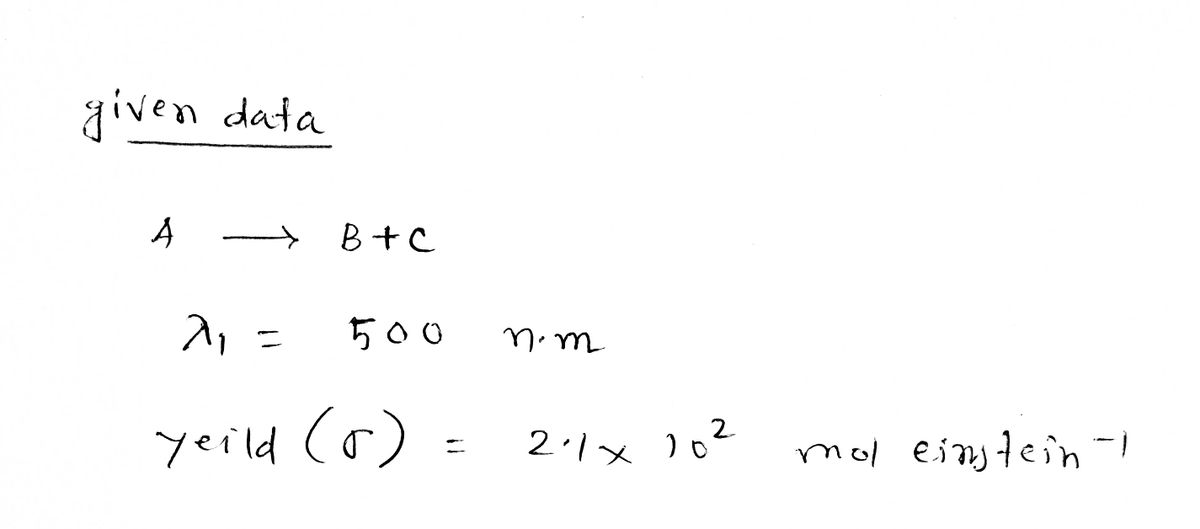 given data
A → B + C
λ₁ = 500 n.m
yeild (σ) = 2.1 × 10² mol einstein⁻¹